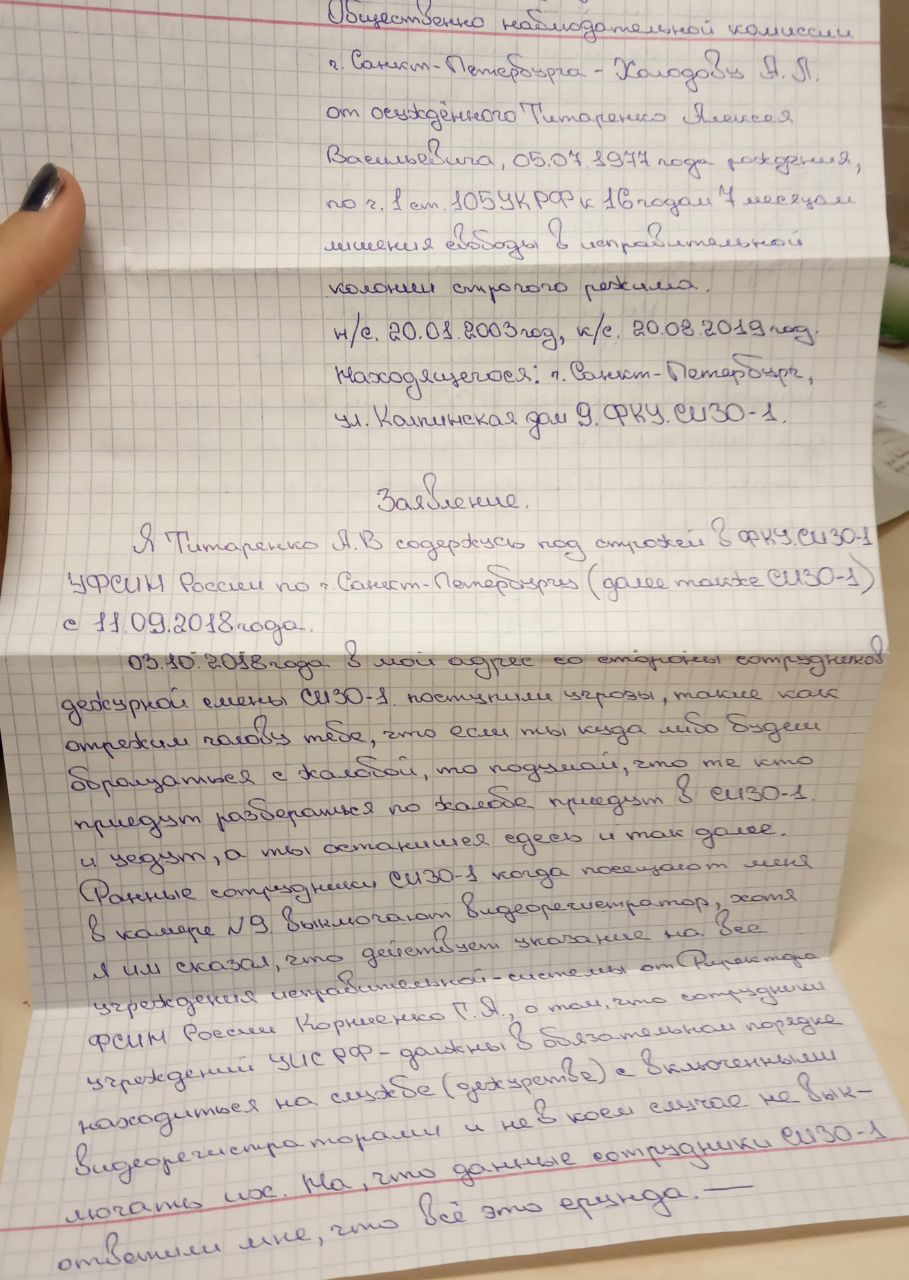 Общественно наблюдательной комиссии
г. Санкт-Петербурга - Холодову Я. Л.
от осуждённого Титаренко Алексея
Васильевича, 05.07.1977 года рождения,
по ч. 1 ст. 105 УК РФ к 16 годам 7 месяцам
лишения свободы в исправительной
колонии строгого режима.
н/с. 20.01.2003 год, к/с. 20.08.2019 год.
Находящегося: г. Санкт-Петербург,
ул. Колпинская дом 9. ФКУ. СИЗО-1.
Заявление.
Я Титаренко А.В содержусь под стражей в ФКУ. СИЗО-1
УФСИН России по г. Санкт-Петербургу (далее также СИЗО-1)
с 11.09.2018 года.
03.10.2018 года в мой адрес со стороны сотрудников
дежурной смены СИЗО-1. поступили угрозы, такие как
отрежим голову тебе, что если ты куда либо будеш
обращаться с жалобой, то подумай, что те кто
приедут разбераться по жалобе приедут в СИЗО-1.
и уедут, а ты останишся сдесь и так далее.
Данные сотрудники СИЗО-1 когда посещают меня
в камере №9 выключают видеорегистратор, хотя
я им сказал, что действует указание на все
учреждения исправительной-системы от Директора
ФСИН России Корниенко Г.А., о том, что сотрудники
учреждений УИС РФ - должны в обязательном порядке
находиться на службе (дежурстве) с включенными
видеорегистраторами и не в коем случае не вык-
лючать их. На, что данные сотрудники СИЗО-1
ответили мне, что всё это ерунда. —